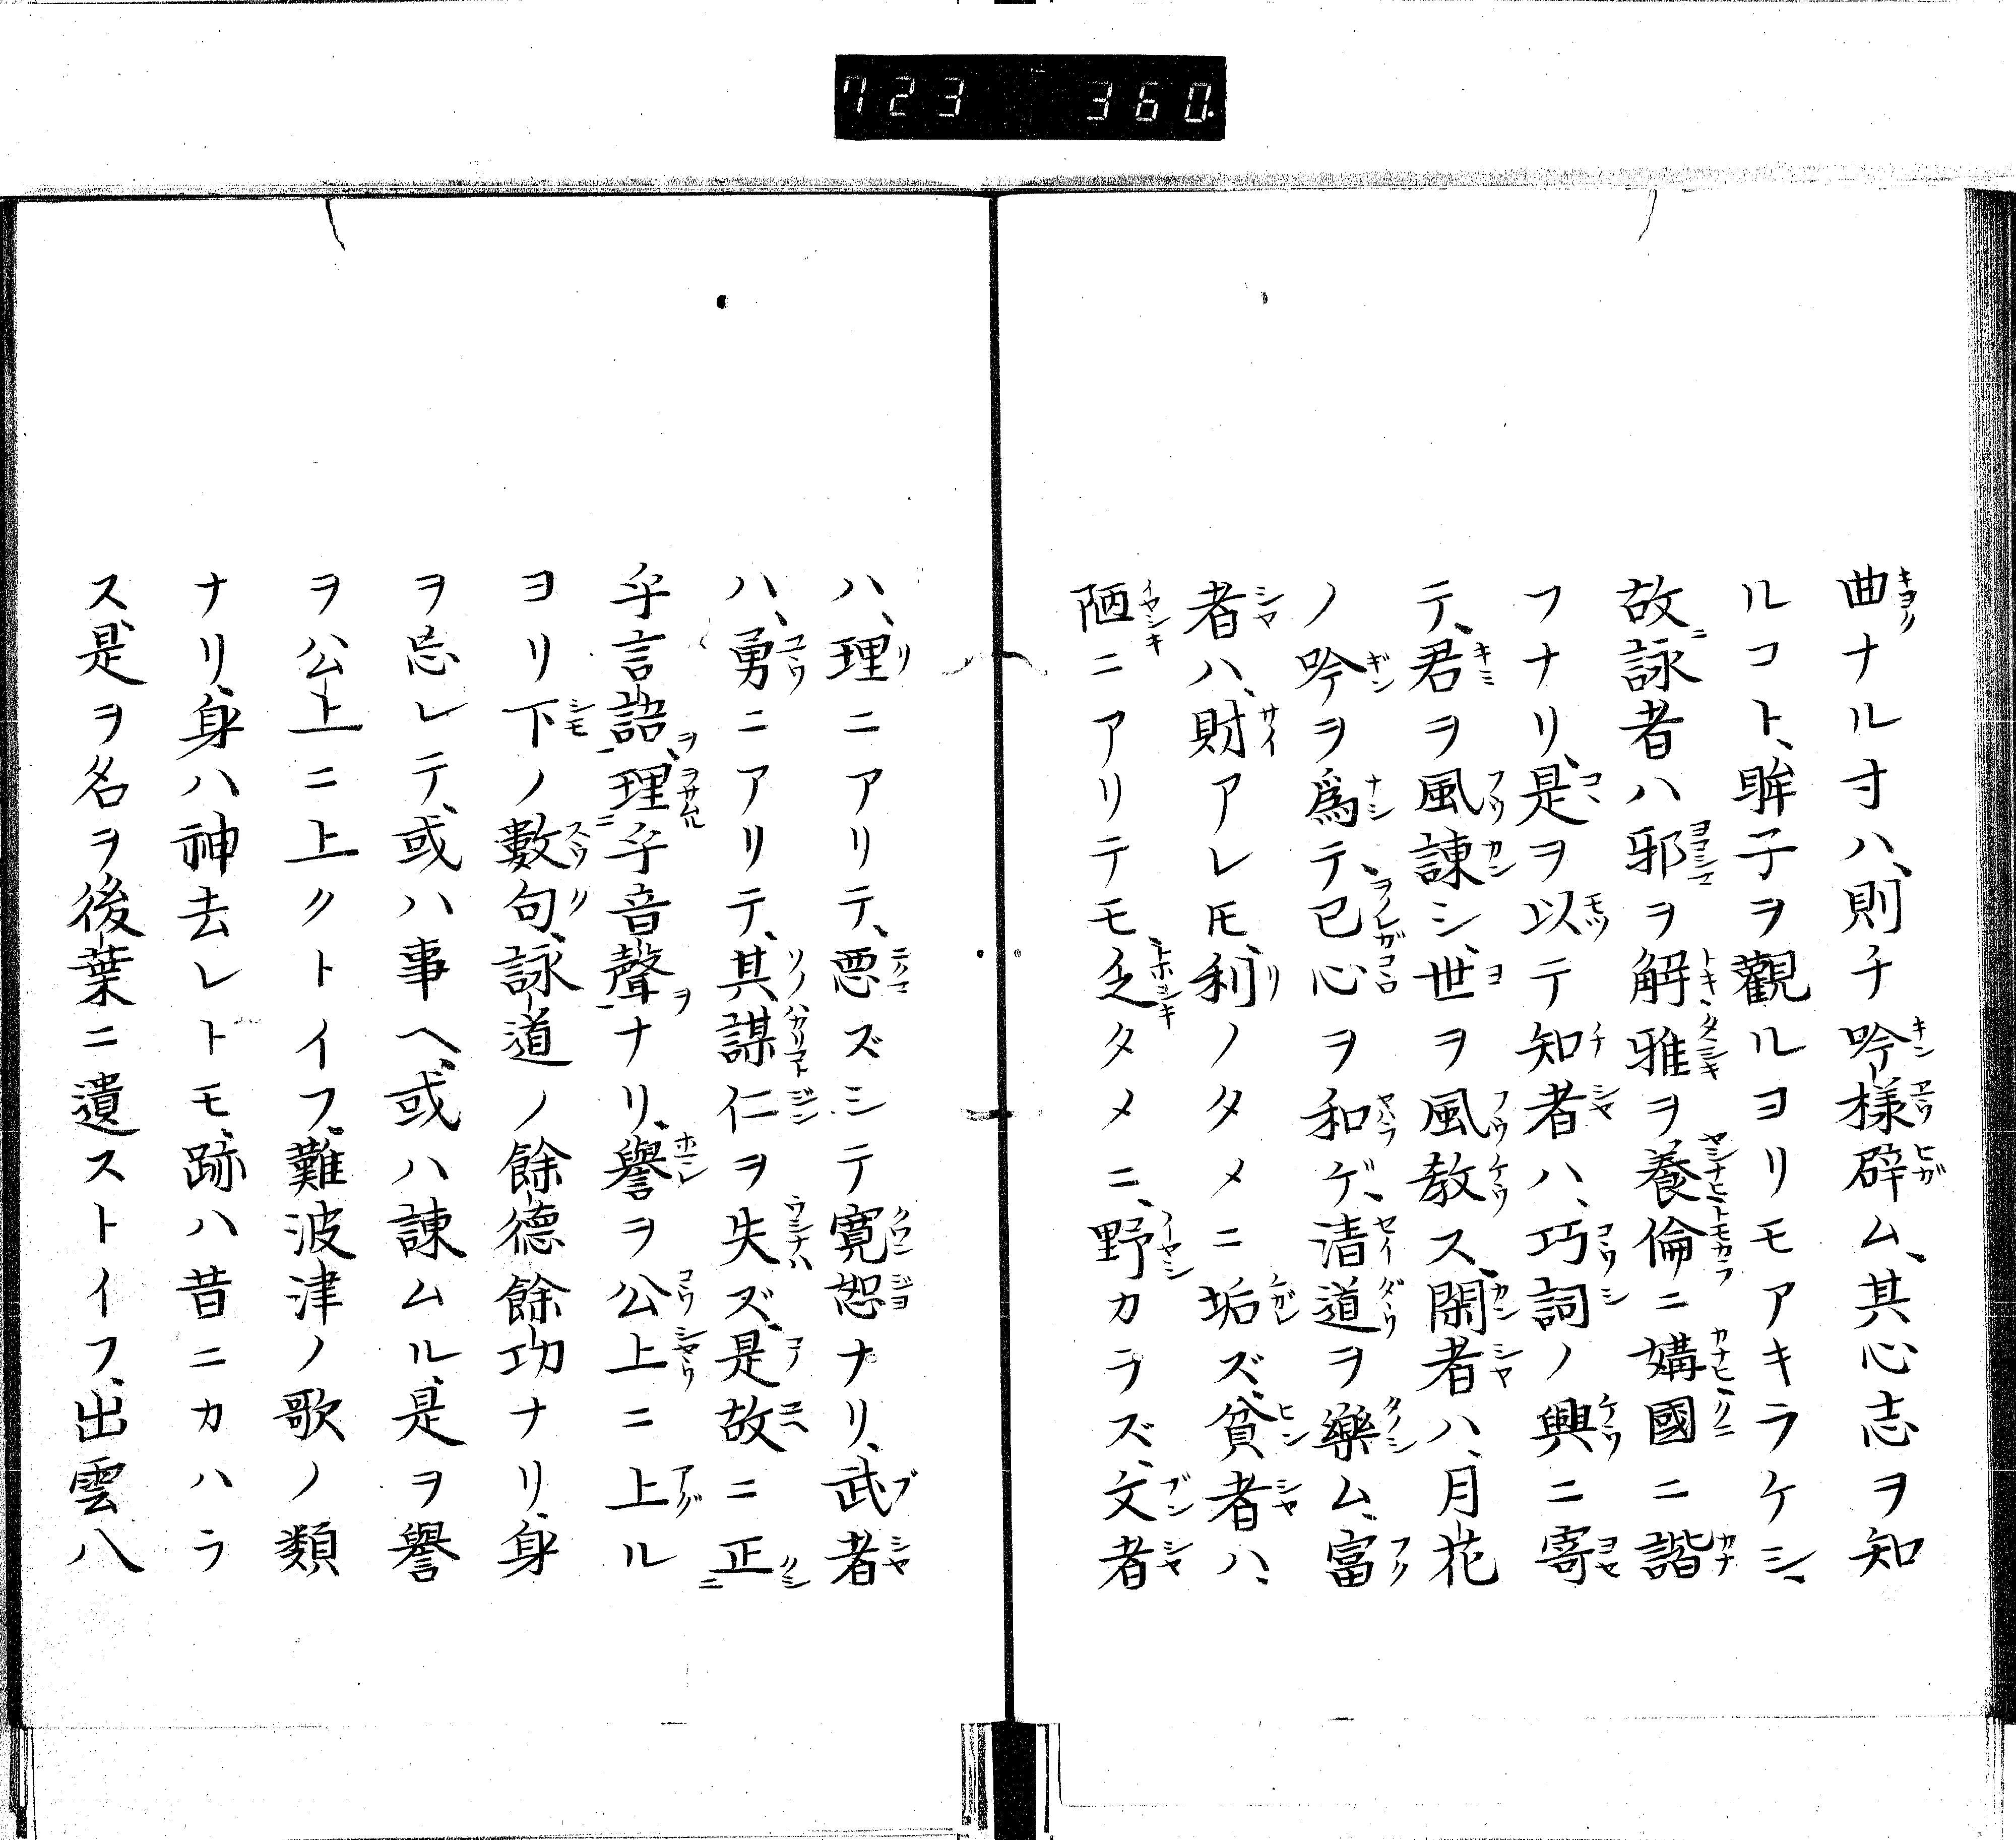 723 360.
曲ナルオハ、則チ吟様辟ム、其心志ヲ知
ルコト、眸子ヲ觀ルヨリモアキラケシ、
故詠者ハ邪ヲ解、雅ヲ養、倫ニ媾、國ニ諧
フナリ、是ヲ以テ知者ハ、巧詞ノ興ニ寄
テ、君ヲ風諫シ、世ヲ風教ス、閑者ハ、月花
ノ吟ヲ爲テ、己心ヲ和ゲ、清道ヲ樂ム、富
者ハ、財アレ𪜈、利ノタメニ垢ズ、貧者ハ、
陋ニアリテモ、乏タメニ、野カラズ、文者
ハ、理ニアリテ、悪ズシテ寛恕ナリ、武者
ハ、勇ニアリテ、其謀仁ヲ失ズ、是故ニ正
乎言語、理乎音聲ナリ、譽ヲ公上ニ上ル
ヨリ下ノ數句、詠道ノ餘德餘功ナリ、身
ヲ忘レテ、或ハ事ヘ、或ハ諫ムル、是ヲ譽
ヲ公上ニ上クトイフ、難波津ノ歌ノ類
ナリ、身ハ神去レトモ、跡ハ昔ニカハラ
ス、是ヲ名ヲ後葉ニ遺ストイフ、出雲八